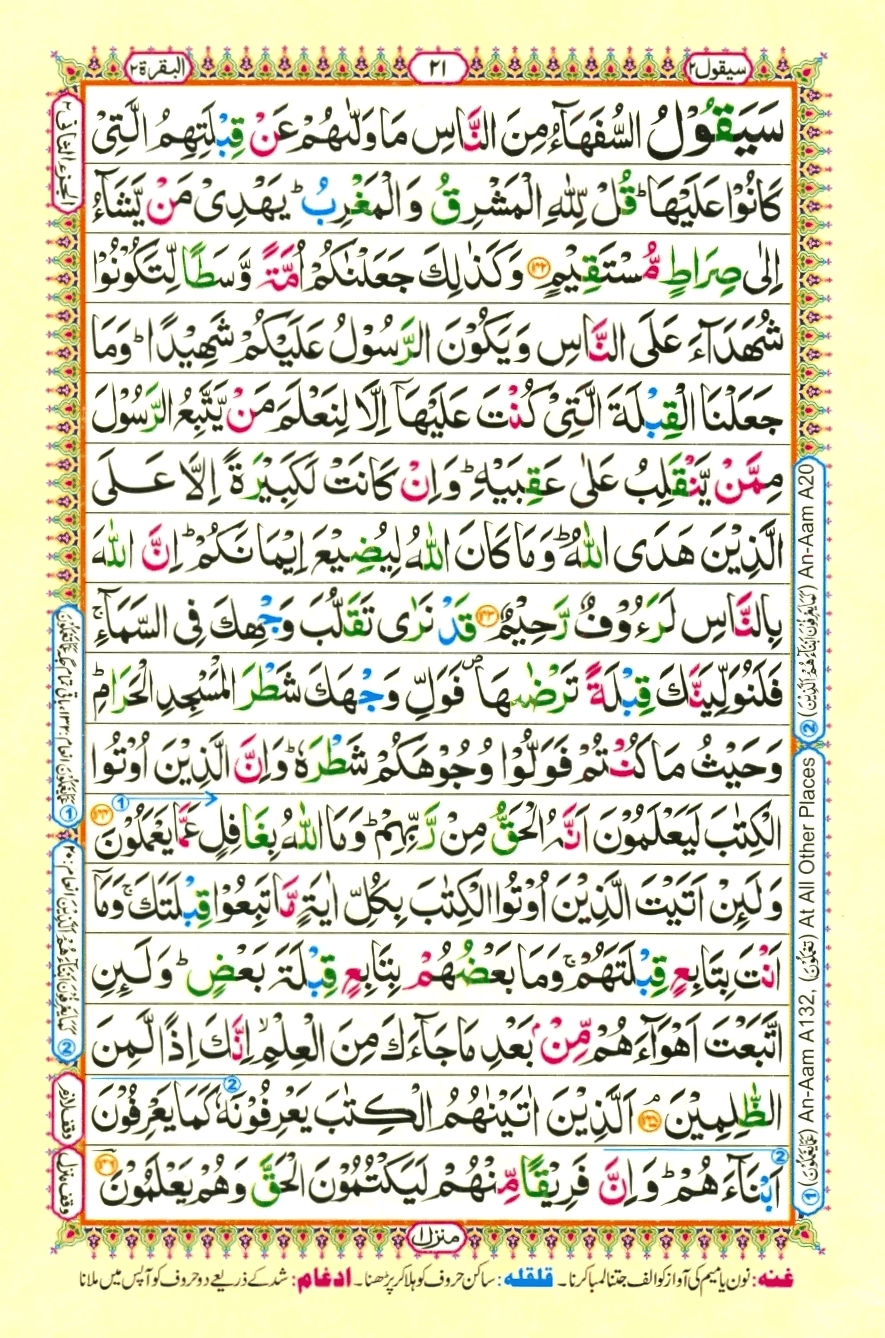 سيقول ٢
٢١
البقرة ٢
الجزء الثانی ٢
سَيَقُوۡلُ السُّفَهَآءُ مِنَ النَّاسِ مَا وَلّٰٮهُمۡ عَنۡ قِبۡلَتِهِمُ الَّتِىۡ
كَانُوۡا عَلَيۡهَا ؕ قُلۡ لِّلّٰهِ الۡمَشۡرِقُ وَالۡمَغۡرِبُ ؕ يَهۡدِىۡ مَنۡ يَّشَآءُ
اِلٰى صِرَاطٍ مُّسۡتَقِيۡمٍ ﴿۱۴۲﴾ وَكَذٰلِكَ جَعَلۡنٰكُمۡ اُمَّةً وَّسَطًا لِّتَکُوۡنُوۡا
شُهَدَآءَ عَلَى النَّاسِ وَيَكُوۡنَ الرَّسُوۡلُ عَلَيۡكُمۡ شَهِيۡدًا ؕ وَمَا
جَعَلۡنَا الۡقِبۡلَةَ الَّتِىۡ كُنۡتَ عَلَيۡهَآ اِلَّا لِنَعۡلَمَ مَنۡ يَّتَّبِعُ الرَّسُوۡلَ
مِمَّنۡ يَّنۡقَلِبُ عَلٰى عَقِبَيۡهِ ؕ وَاِنۡ كَانَتۡ لَكَبِيۡرَةً اِلَّا عَلَى
الَّذِيۡنَ هَدَى اللّٰهُ ؕ وَمَا كَانَ اللّٰهُ لِيُضِيۡعَ اِيۡمَانَكُمۡ ؕ اِنَّ اللّٰهَ
بِالنَّاسِ لَرَءُوۡفٌ رَّحِيۡمٌ ﴿۱۴۳﴾ قَدۡ نَرٰى تَقَلُّبَ وَجۡهِكَ فِى السَّمَآءِ ۚ
فَلَـنُوَلِّيَنَّكَ قِبۡلَةً تَرۡضٰٮهَا ۖ فَوَلِّ وَجۡهَكَ شَطۡرَ الۡمَسۡجِدِ الۡحَـرَامِ ؕ
وَحَيۡثُ مَا كُنۡتُمۡ فَوَلُّوۡا وُجُوۡهَكُمۡ شَطۡرَهٗ ؕ وَاِنَّ الَّذِيۡنَ اُوۡتُوا
الۡكِتٰبَ لَيَـعۡلَمُوۡنَ اَنَّهُ الۡحَـقُّ مِنۡ رَّبِّهِمۡ ؕ وَمَا اللّٰهُ بِغَافِلٍ عَمَّا يَعۡمَلُوۡنَ ﴿۱۴۴﴾
وَلَئِنۡ اَ تَيۡتَ الَّذِيۡنَ اُوۡتُوا الۡكِتٰبَ بِكُلِّ اٰيَةٍ مَّا تَبِعُوۡا قِبۡلَتَكَ ۚ وَمَآ
اَنۡتَ بِتَابِعٍ قِبۡلَتَهُمۡ ۚ وَمَا بَعۡضُهُمۡ بِتَابِعٍ قِبۡلَةَ بَعۡضٍ ؕ وَلَئِنِ
اتَّبَعۡتَ اَهۡوَآءَهُمۡ مِّنۡۢ بَعۡدِ مَا جَآءَكَ مِنَ الۡعِلۡمِ ۙ اِنَّكَ اِذًا لَّمِنَ
الظّٰلِمِيۡنَ ﴿۱۴۵﴾ ۘ اَلَّذِيۡنَ اٰتَيۡنٰهُمُ الۡكِتٰبَ يَعۡرِفُوۡنَهٗ كَمَا يَعۡرِفُوۡنَ
اَبۡنَآءَهُمۡ ؕ وَاِنَّ فَرِيۡقًا مِّنۡهُمۡ لَيَكۡتُمُوۡنَ الۡحَـقَّ وَهُمۡ يَعۡلَمُوۡنَ ﴿۱۴۶﴾
وقف لازم
وقف منزل
① (عَمَّا يَعۡمَلُوۡنَ) An-Aam A132, (تَعۡمَلُوۡنَ) At All Other Places
② (كَمَا يَعۡرِفُوۡنَ اَبۡنَآءَهُمۡ اَلَّذِيۡنَ) An-Aam A20
منزل ۱
غنه: نون یا میم کی آواز کو الف جتنا لمبا کرنا۔ قلقله: ساکن حروف کو ہلا کر پڑھنا۔ ادغام: شد کے ذریعے دو حروف کو آپس میں ملانا